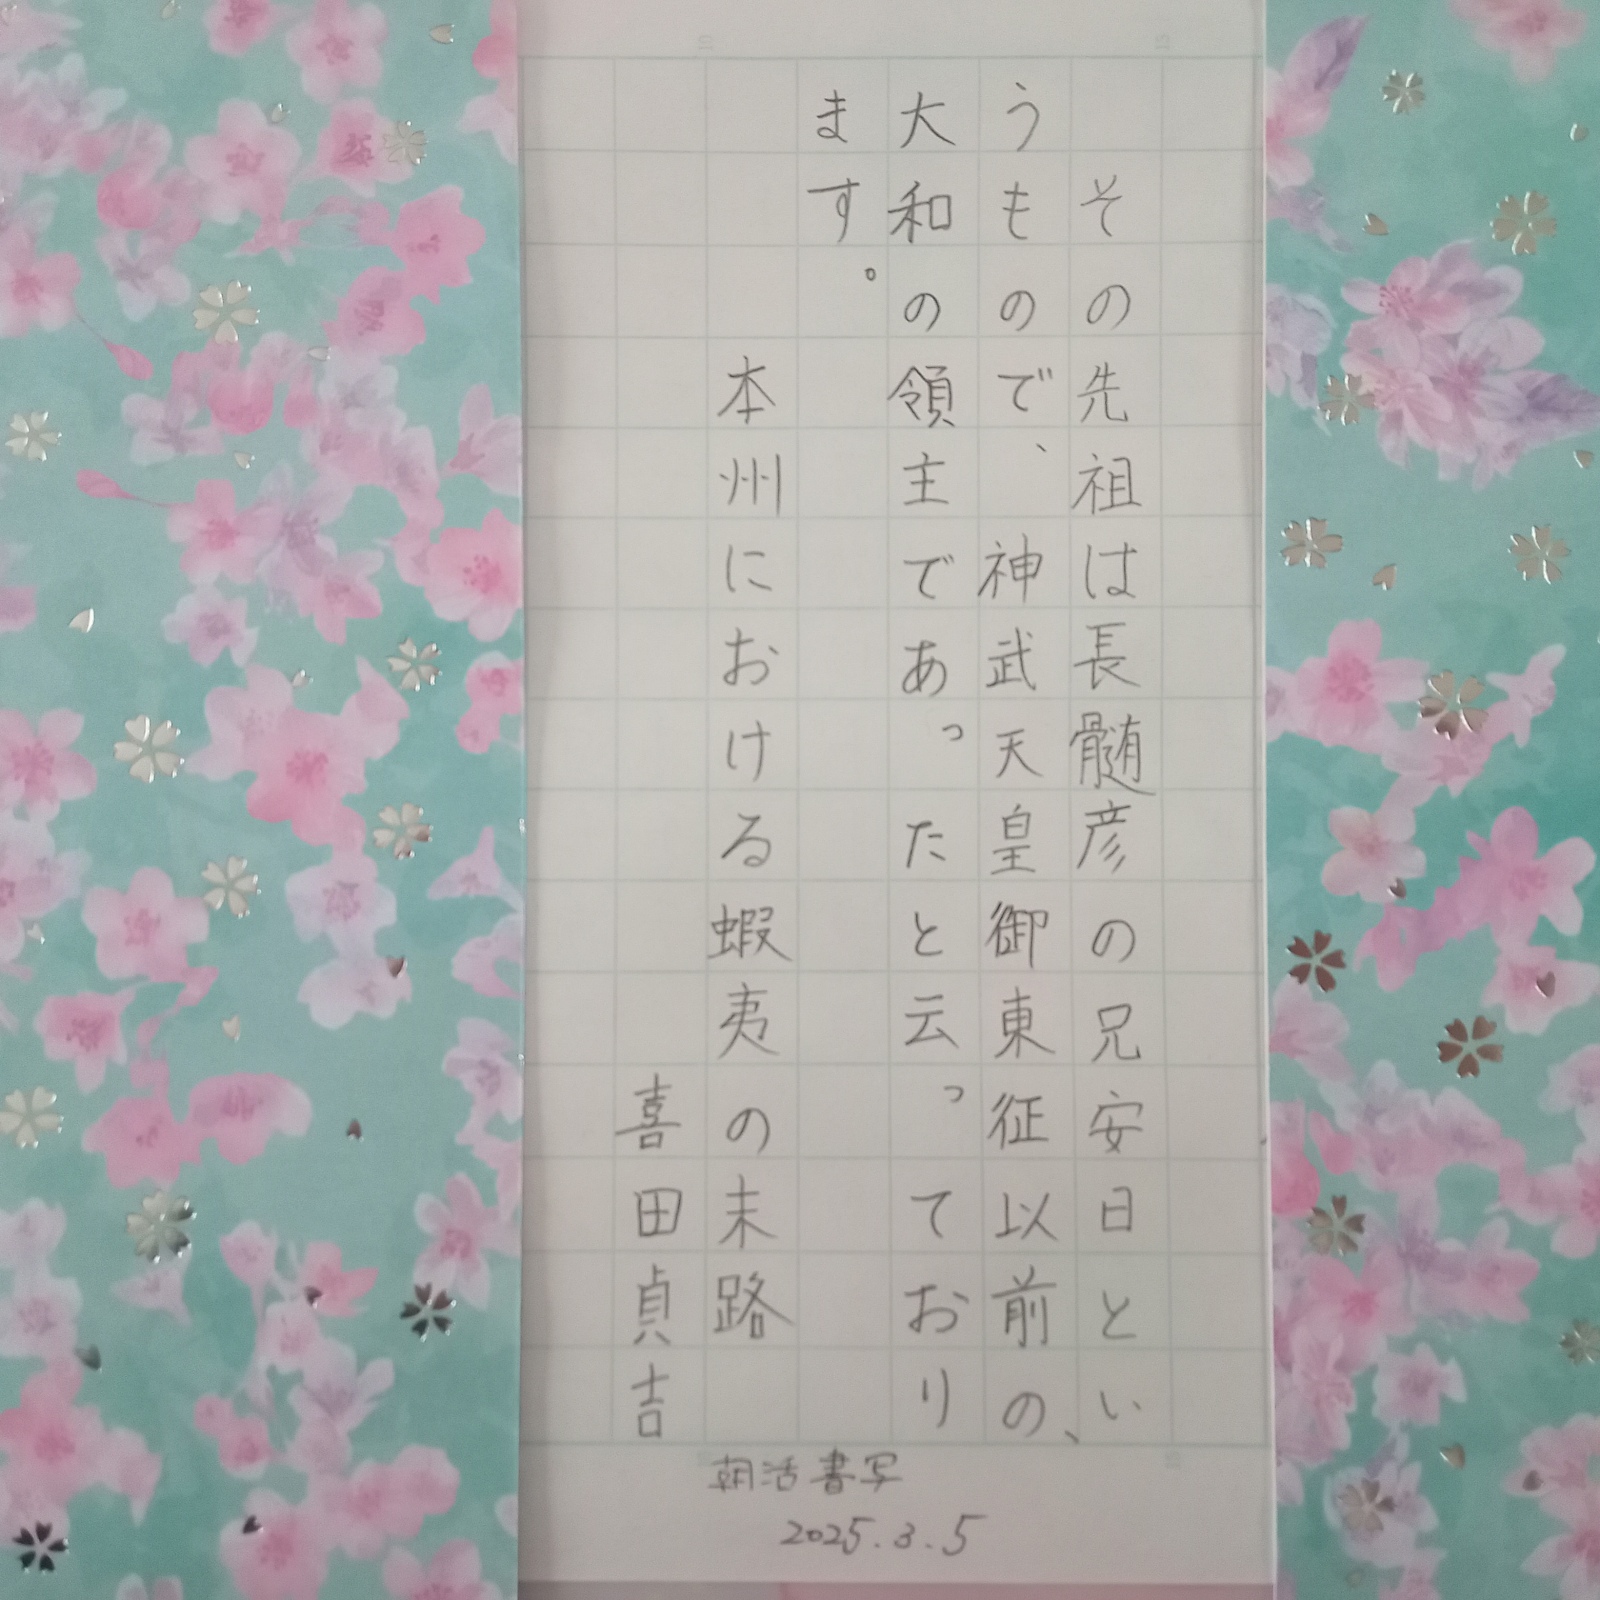 その先祖は長髄彦の兄安日とい
うもので、神武天皇御東征以前の、
大和の領主であったと云っており
ます。
本州における蝦夷の末路
喜田貞吉
朝活書写
2025.3.5